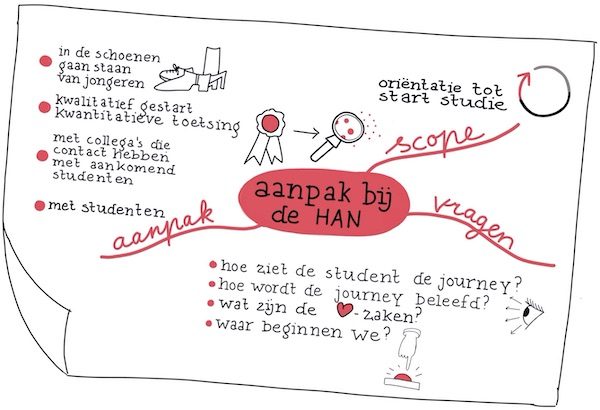 in de schoenen
gaan staan
van jongeren
kwalitatief gestart
kwantitatieve toetsing
met collega's die
contact hebben
met aankomend
studenten
met studenten
aanpak
oriëntatie tot
start studie
scope
aanpak bij
de HAN
vragen
hoe ziet de student de journey?
hoe wordt de journey beleefd?
wat zijn de ❤-zaken?
waar beginnen we?